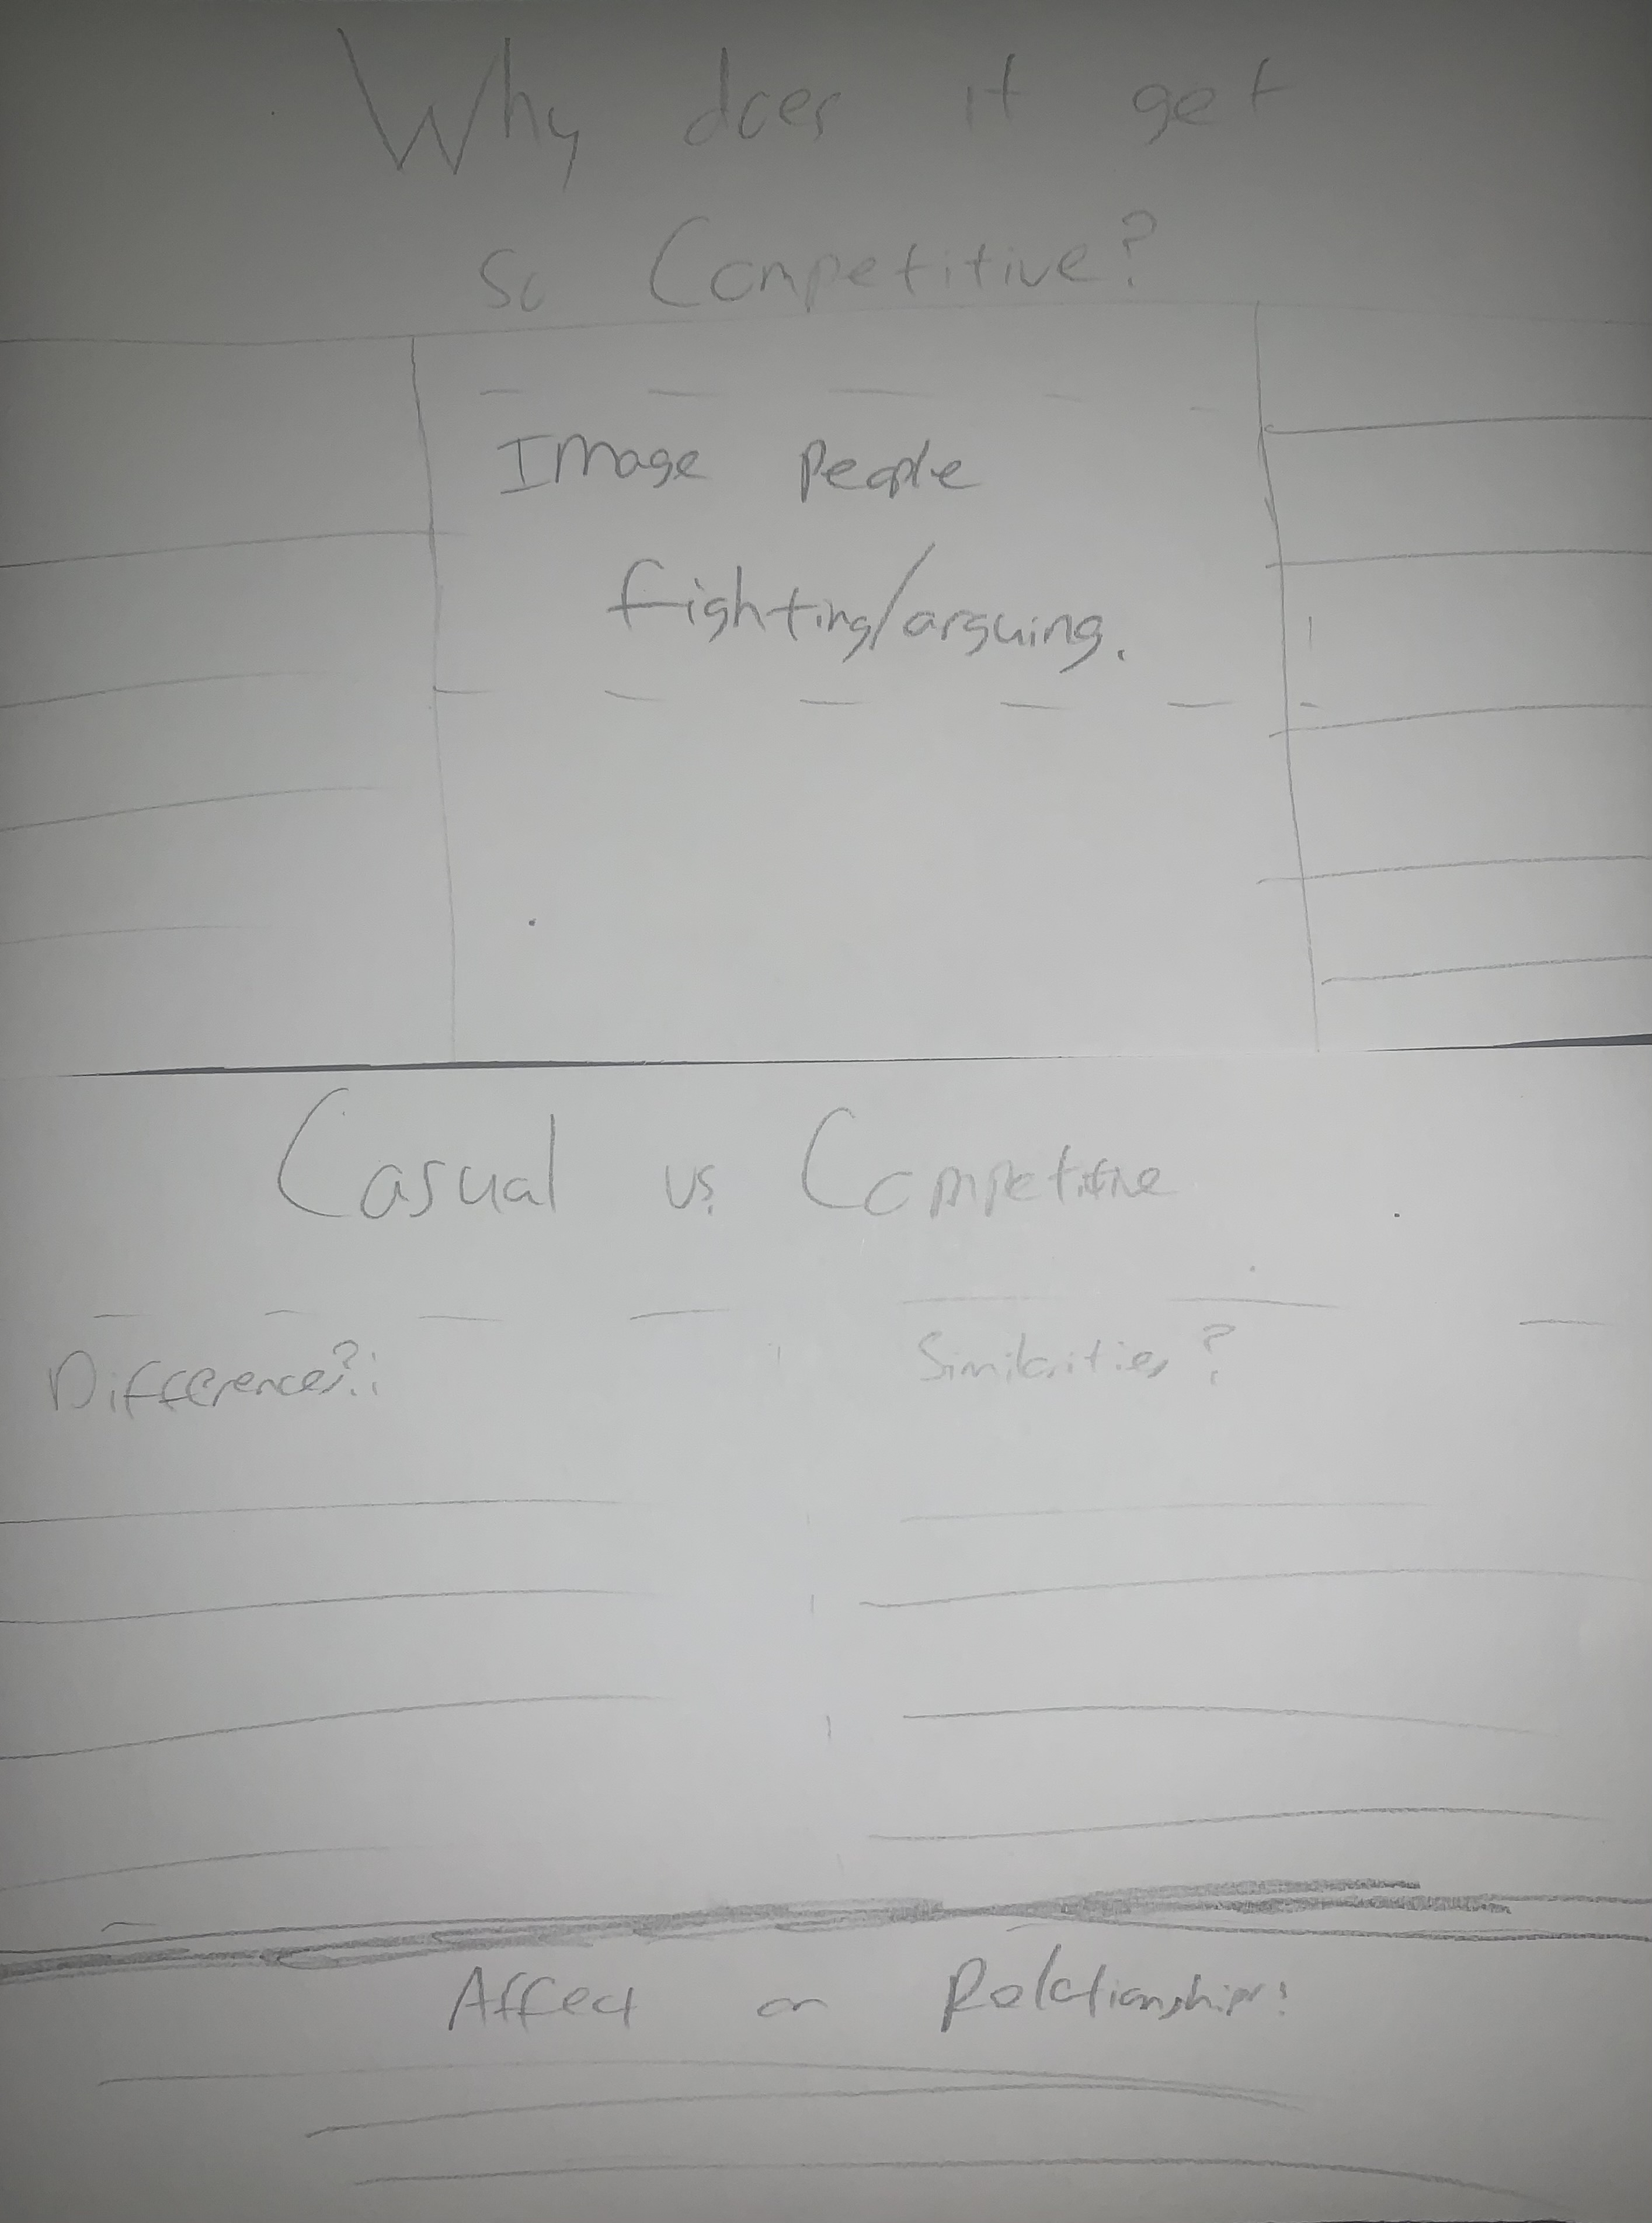 Why does it get
so Competitive?
Image People
fighting/arguing.
Casual vs. Competitive
Differences?:
Similarities?
Affect on Relationships: